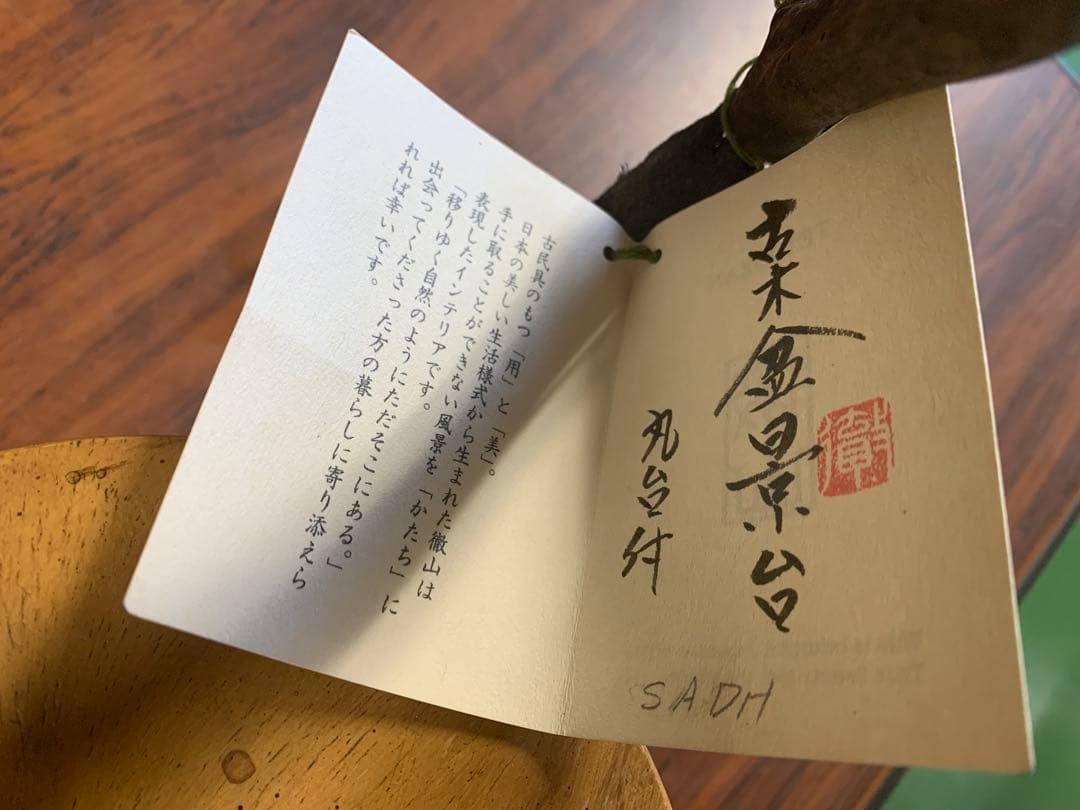 古木盆景台
丸台付
SADH
古民具のもつ「用」と「美」。
日本の美しい生活様式から生まれた徹山は
手に取ることができない風景を「かたち」に
表現したインテリアです。
「移りゆく自然のようにただそこにある。」
出会ってくださった方の暮らしに寄り添えら
れれば幸いです。